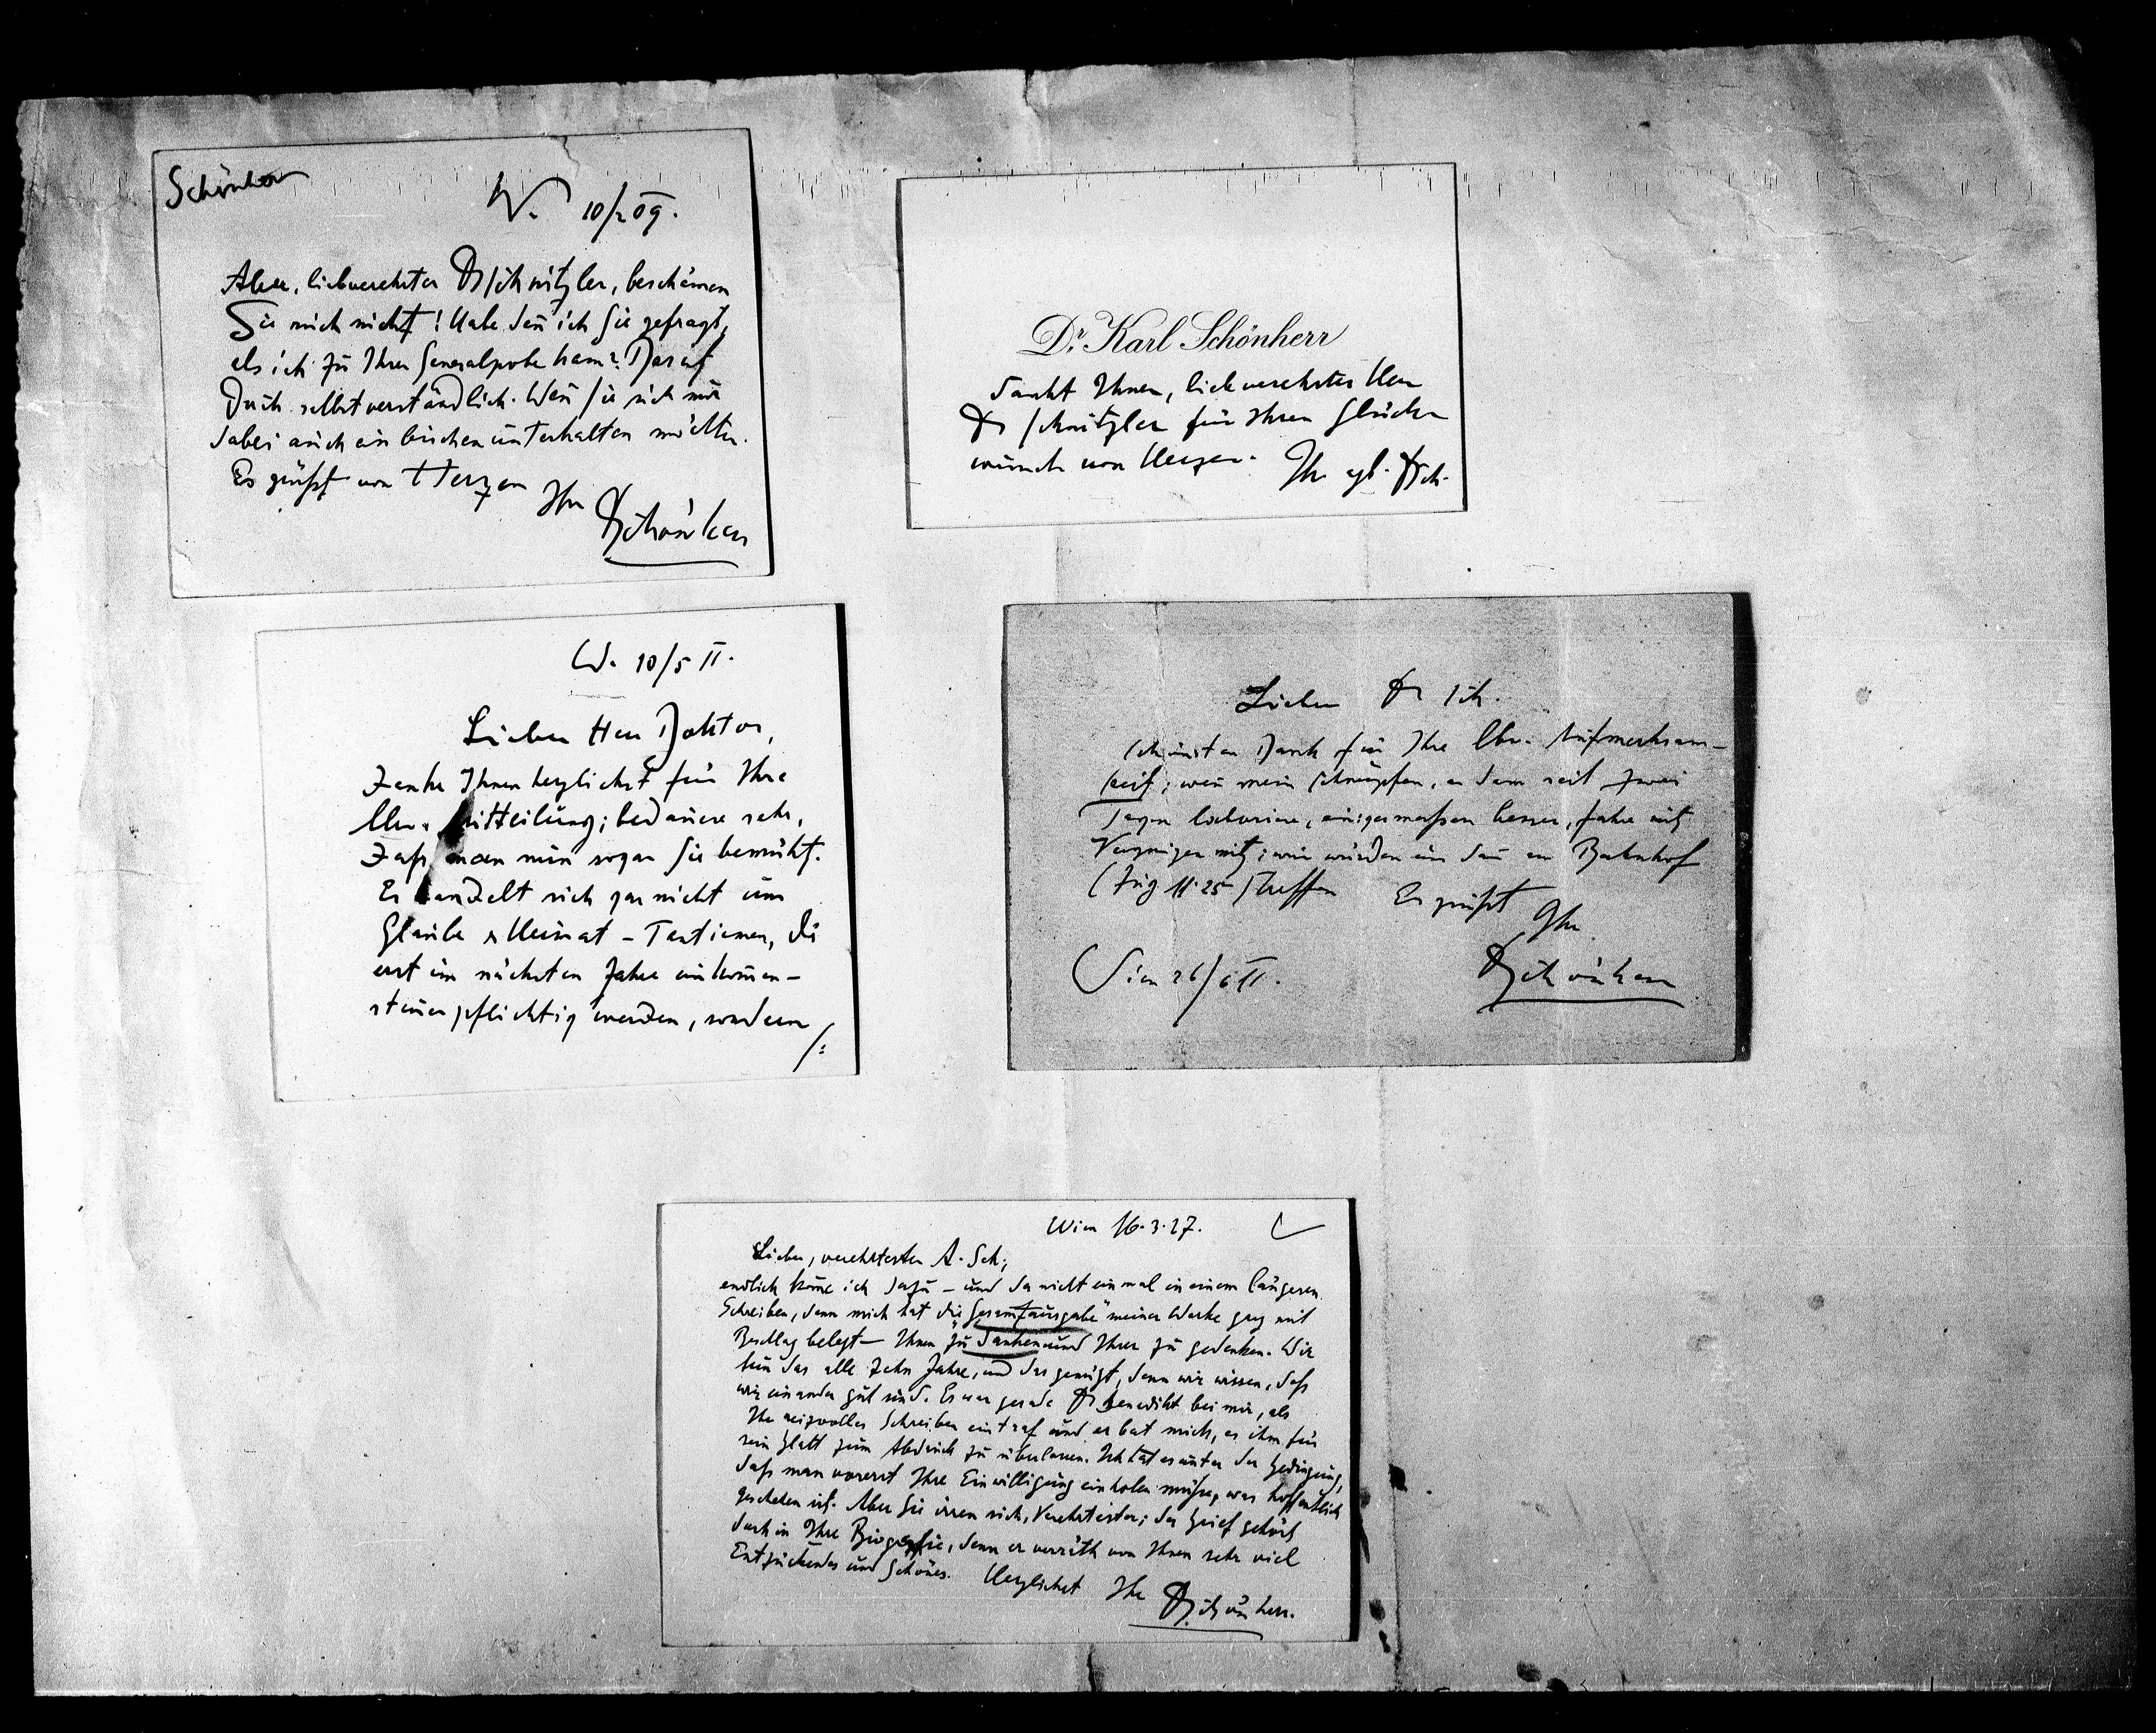 Schönherr
W. 10/2 09.
Aber, liebverehrter Dr Schnitzler, beschämen
Sie mich nicht! Habe deñ ich Sie gefragt,
als ich zu Ihrer Generalprobe kam? Das ist
doch selbstverständlich. Weñ Sie sich nur
dabei auch ein bischen unterhalten möchten.
Es grüßt von Herzen Ihr
DrSchönherr
Dr. Karl Schönherr
dankt Ihnen, liebverehrter Herr
Dr Schnitzler für Ihren Glück-
wunsch von Herzen. Ihr erg. DrSch.
W. 10/5 11.
Lieber Herr Doktor,
Danke Ihnen herzlichst für Ihre
lbw. Mitteilung; bedauere sehr,
daß man nun sogar Sie bemüht.
Es handelt sich gar nicht um
Glaube & Heimat-Tantiemen, die
erst im nächsten Jahre einkom̄en-
steuerpflichtig werden, sondern
/:
Lieber Dr Sch.
Schönsten Dank für Ihre lbw. Aufmerksam-
keit; weñ mein Schnupfen, an dem seit zwei
Tagen laboriere, einigermaßen besser, fahre mit
Vergnügen mit; wir würden uns dañ am Bahnhof
(Zug 11·25) treffen Es grüßt
Ihr
Wien 26/6 11. DrSchönherr
Wien 16.3.27.
Lieber, verehrtester A. Sch;
endlich kom̄e ich dazu – und da nicht einmal in einem längeren
Schreiben, denn mich hat die „Gesamtausgabe" meiner Werke ganz mit
Beschlag belegt – Ihnen zu danken und Ihrer zu gedenken. Wir
tun das alle zehn Jahre, und das genügt, denn wir wissen, daß
wir einander gut sind. Es war gerade Dr Benedikt bei mir, als
Ihr reizvolles Schreiben eintraf und er bat mich, es ihm für
sein Blatt zum Abdruck zu überlassen. Ich tat es unter der Bedingung,
daß man vorerst Ihre Einwilligung einholen müsse, was hoffentlich
geschehen ist. Aber Sie irren sich, Verehrtester; der Brief gehört
doch in Ihre Biografie, denn er verräth von Ihnen sehr viel
Entzückendes und Schönes. Herzlichst Ihr
DrSchönherr.